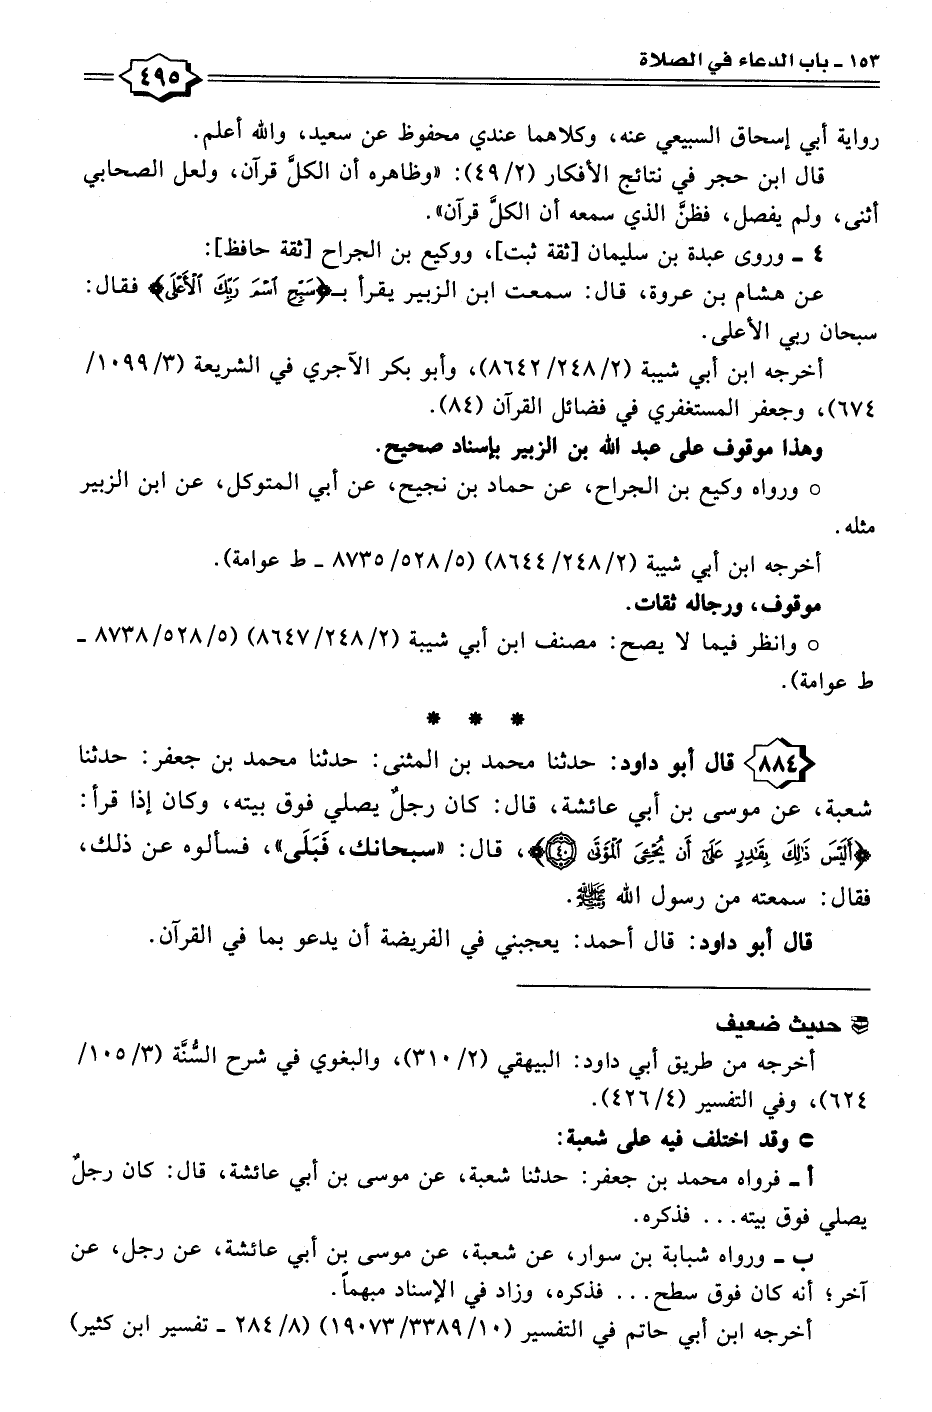 ١٥٣ - باب الدعاء في الصلاة
٤٩٥
رواية أبي إسحاق السبيعي عنه، وكلاهما عندي محفوظ عن سعيد، والله أعلم.
قال ابن حجر في نتائج الأفكار (٤٩/٢): «وظاهره أن الكلَّ قرآن، ولعل الصحابي
أثنى، ولم يفصل، فظنَّ الذي سمعه أن الكلَّ قرآن».
٤ - وروى عبدة بن سليمان [ثقة ثبت]، ووكيع بن الجراح [ثقة حافظ]:
عن هشام بن عروة، قال: سمعت ابن الزبير يقرأ بـ﴿سَبِّحِ ٱسْمَ رَبِّكَ ٱلْأَعْلَى﴾ فقال:
سبحان ربي الأعلى.
أخرجه ابن أبي شيبة (٨٦٤٢/٢٤٨/٢)، وأبو بكر الآجري في الشريعة (١٠٩٩/٣/
٦٧٤)، وجعفر المستغفري في فضائل القرآن (٨٤).
وهذا موقوف على عبد الله بن الزبير بإسناد صحيح.
○ ورواه وكيع بن الجراح، عن حماد بن نجيح، عن أبي المتوكل، عن ابن الزبير
مثله.
أخرجه ابن أبي شيبة (٨٦٤٤/٢٤٨/٢) (٨٧٣٥/٥٢٨/٥ - ط عوامة).
موقوف، ورجاله ثقات.
○ وانظر فيما لا يصح: مصنف ابن أبي شيبة (٨٦٤٧/٢٤٨/٢) (٨٧٣٨/٥٢٨/٥ -
ط عوامة).
* * *
٨٨٤ قال أبو داود: حدثنا محمد بن المثنى: حدثنا محمد بن جعفر: حدثنا
شعبة، عن موسى بن أبي عائشة، قال: كان رجلٌ يصلي فوق بيته، وكان إذا قرأ:
﴿أَلَيْسَ ذَٰلِكَ بِقَٰدِرٍ عَلَىٰٓ أَن يُحْۦِىَ ٱلْمَوْتَىٰ ٤٠﴾، قال: «سبحانك، فَبَلَى»، فسألوه عن ذلك،
فقال: سمعته من رسول الله ﷺ.
قال أبو داود: قال أحمد: يعجبني في الفريضة أن يدعو بما في القرآن.
حديث ضعيف
أخرجه من طريق أبي داود: البيهقي (٣١٠/٢)، والبغوي في شرح السُّنَّة (١٠٥/٣/
٦٢٤)، وفي التفسير (٤٢٦/٤).
وقد اختلف فيه على شعبة:
أ - فرواه محمد بن جعفر: حدثنا شعبة، عن موسى بن أبي عائشة، قال: كان رجلٌ
يصلي فوق بيته... فذكره.
ب - ورواه شبابة بن سوار، عن شعبة، عن موسى بن أبي عائشة، عن رجل، عن
آخر؛ أنه كان فوق سطح... فذكره، وزاد في الإسناد مبهماً.
أخرجه ابن أبي حاتم في التفسير (١٩٠٧٣/٣٣٨٩/١٠) (٢٨٤/٨ - تفسير ابن كثير)